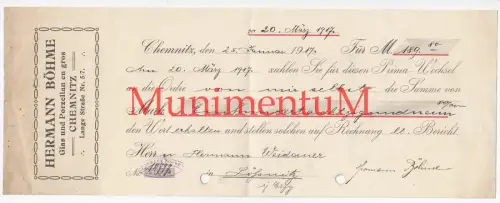 HERMANN BÖHME
Glas und Porzellan en gros
CHEMNITZ
Lange Straße Nr. 57.
20. März 1917.
Chemnitz, den 25. Januar 1917. Für M. 189.
Am 20. März 1917. zahlen Sie für diesen Prima-Wechsel
die Ordre von mir selbst die Summe von
MunimentuM
Mark
den Wert erhalten und stellen solchen auf Rechnung Bericht
Herrn Hermann Weidauer
Hermann Böhme
in Lößnitz
i/ Erzg